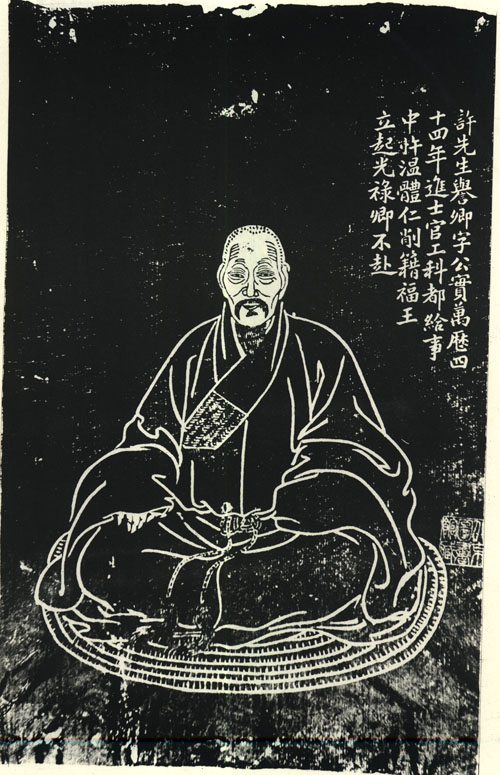 許先生譽卿字公實萬曆四
十四年進士官工科都給事
中忤溫體仁削籍福王
立起光祿卿不赴